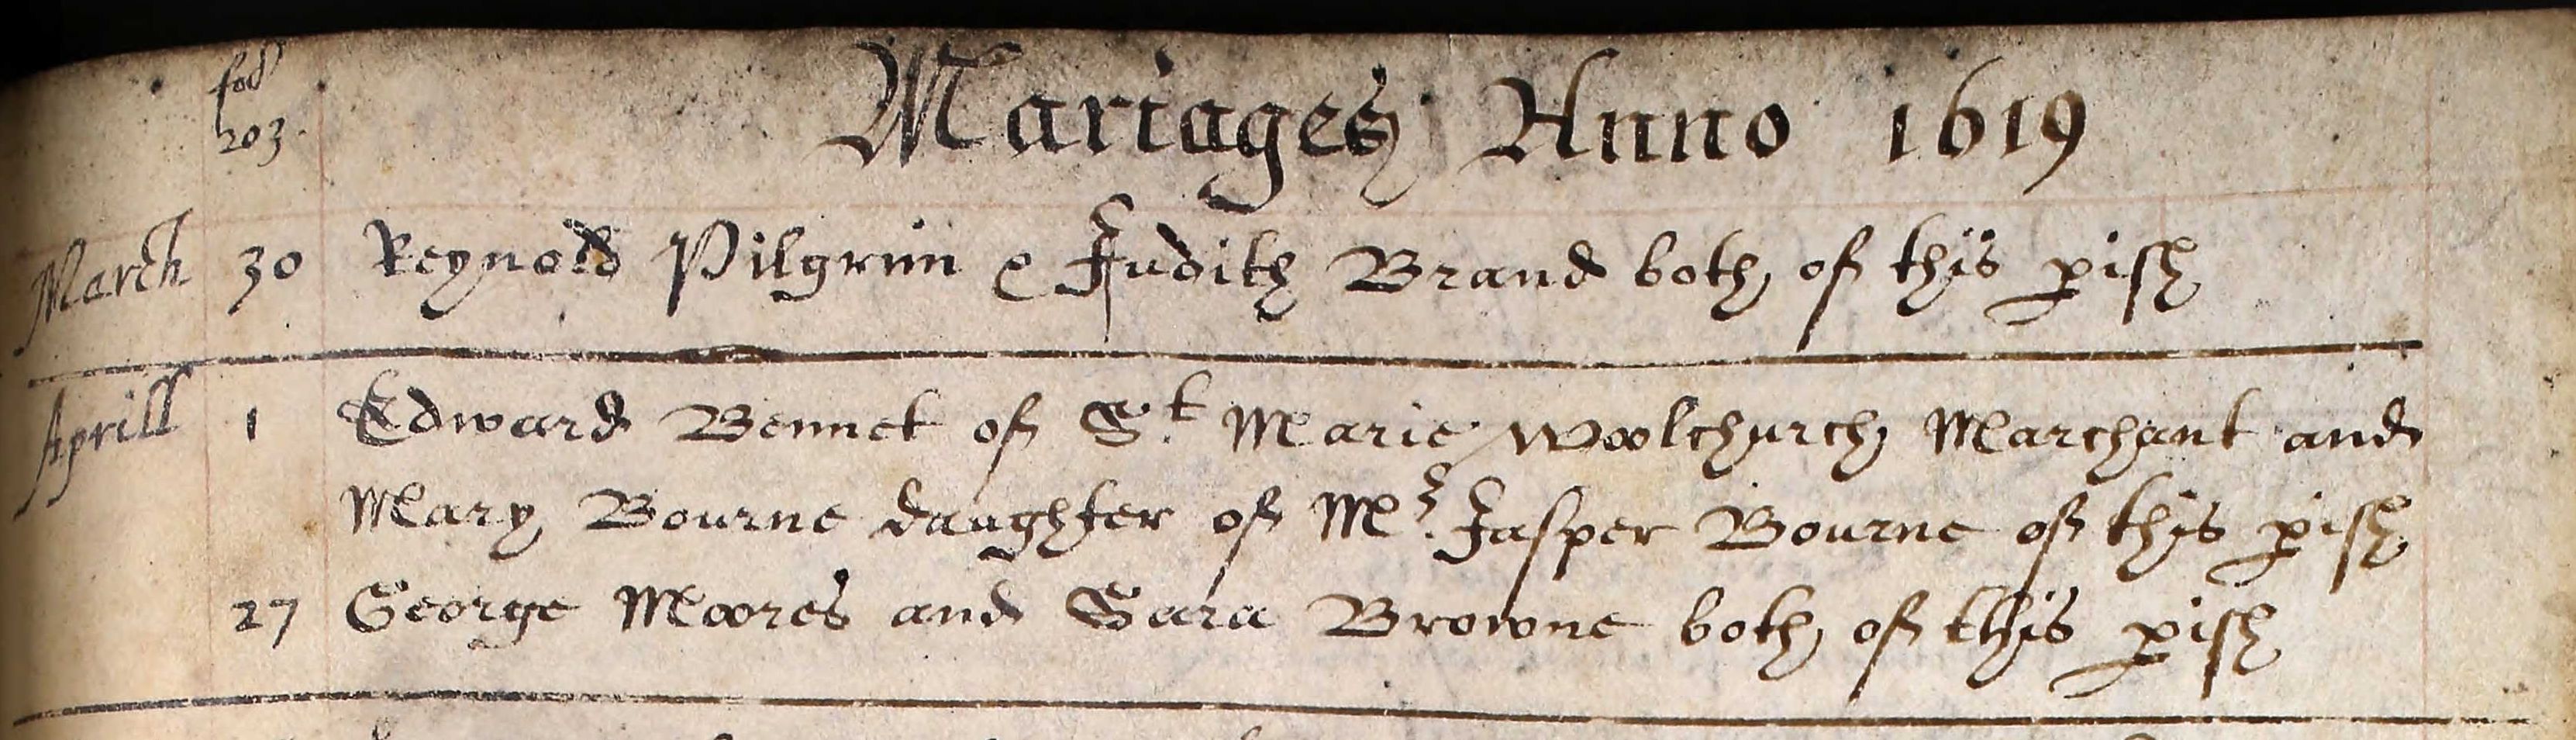 fol
203.
Mariages Anno 1619
March 30 Reynold Pilgrim & Judith Brand both of this pish
Aprill 1 Edward Bennet of St. Marie Woolchurch Marchant and
Mary Bourne daughter of Mr. Jasper Bourne of this pish
27 George Moores and Sara Browne both of this pish